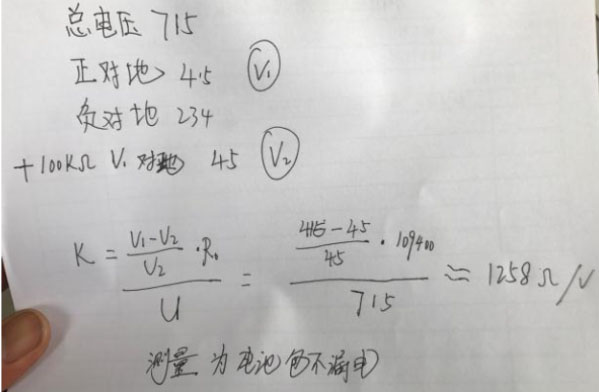 总电压 715
正对地 415 V₁
负对地 234
+100KΩ V₁ 对地 45 V₂
K = \frac{\frac{V₁-V₂}{V₂}·R₀}{U} = \frac{\frac{415-45}{45}·109400}{715} ≈ 1258Ω/V
测量为电池包不漏电